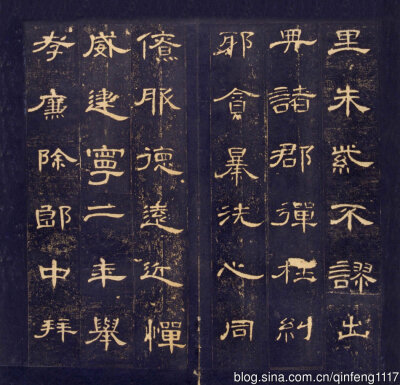 里朱紫不謬出
典諸郡彈枉糾
邪貪暴洗心同
僚服德遠近憚
威建寧二年舉
孝廉除郎中拜
blog.sina.com.cn/qinfeng1117